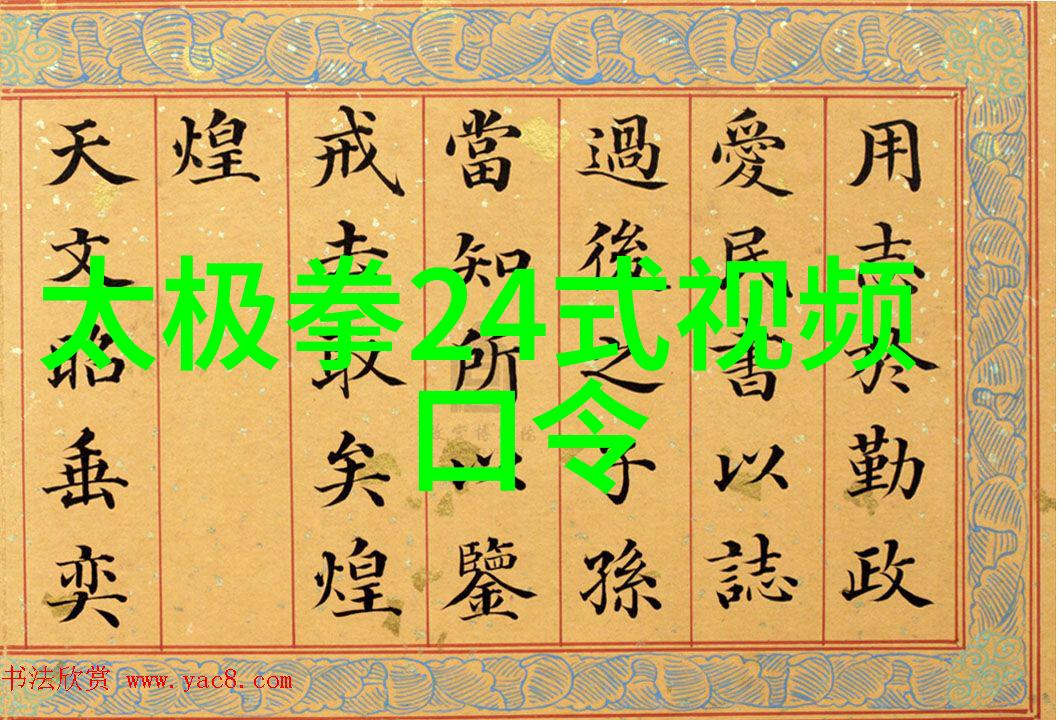 太极拳24式视频
口令
用志於勤政
愛民書以誌
過後之子孫
當知所以鑒
戒去取矣煌
煌
天文昭垂奕
书法欣赏 www.yac8.com